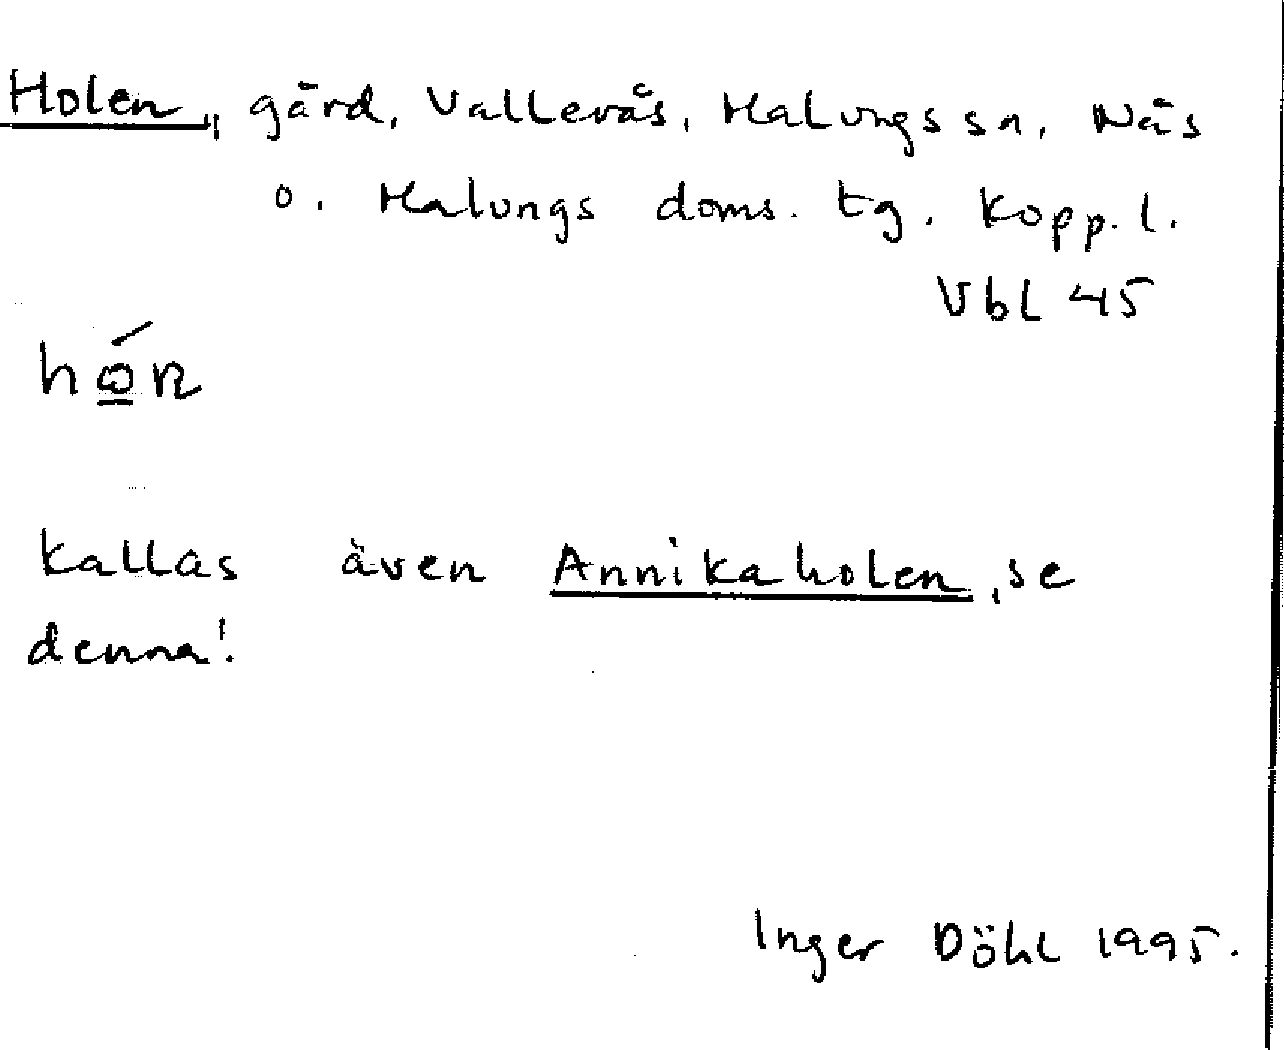 Holen, gård, Vallerås, Malungs sn, Näs
o. Malungs doms. tg. Kopp. l.
Vbl 45
kallas även Annikaholen, se
denna!
Inger Döhl 1995.